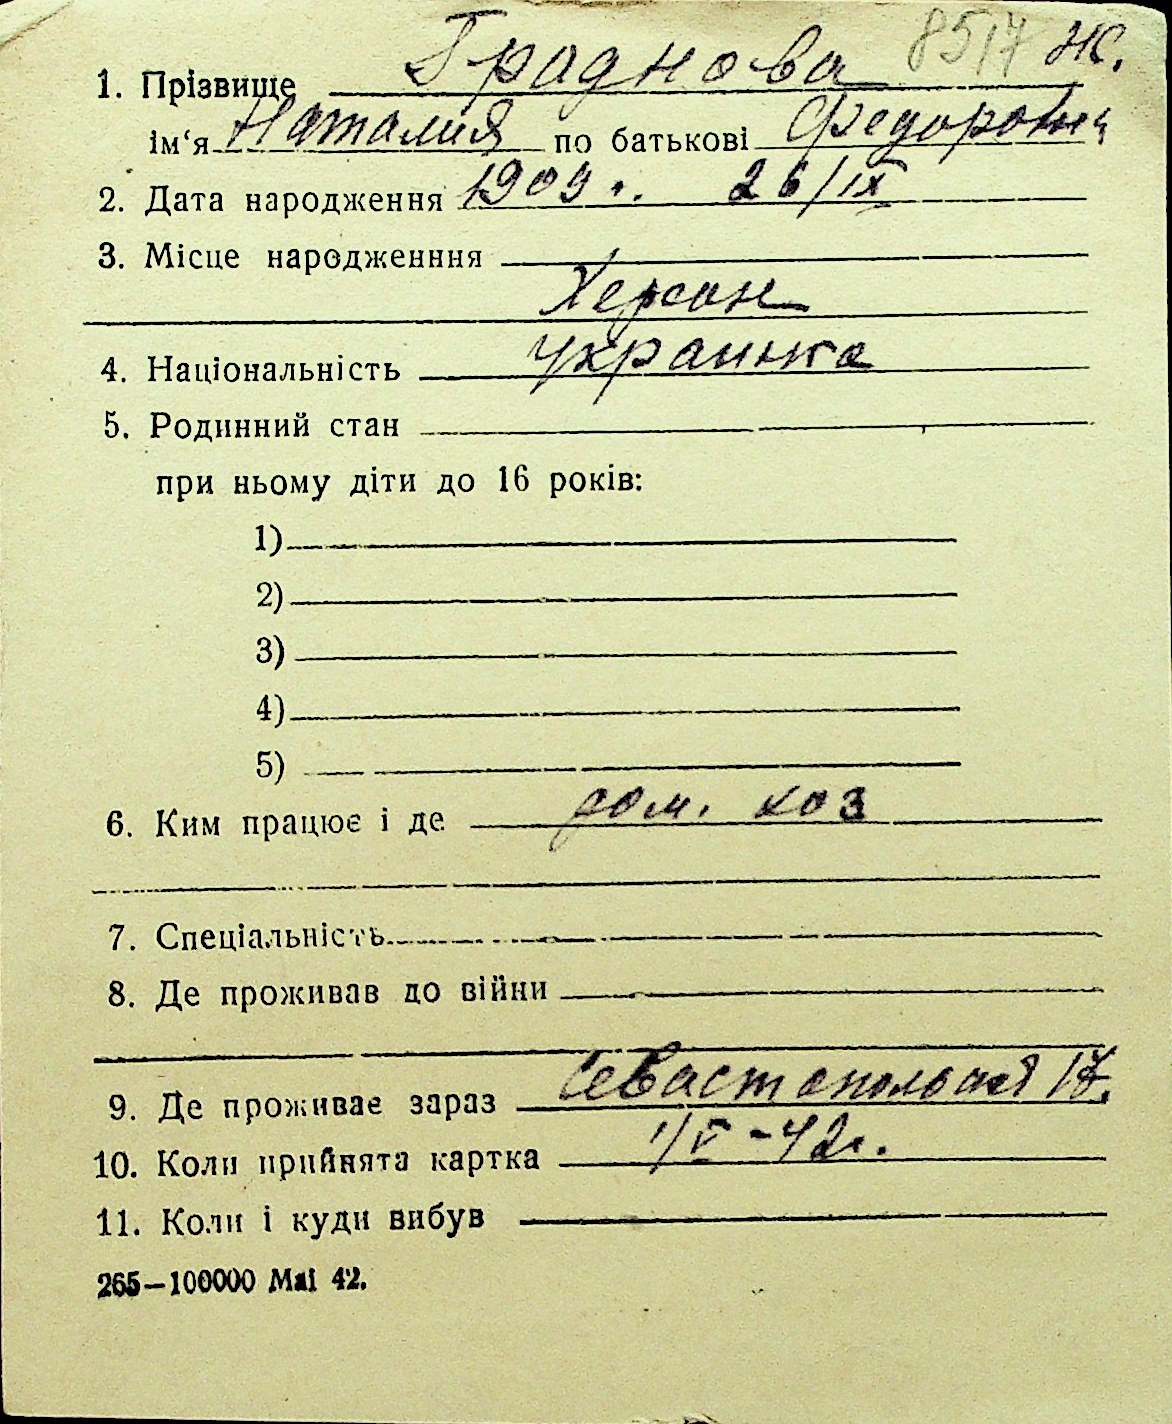 8517 Ж.
1. Прізвище Граднова
ім‘я Наталия по батькові Федоровна
2. Дата народження 1909 г. 26/IX
3. Місце народженння
Херсон
4. Національність украинка
5. Родинний стан
при ньому діти до 16 років:
1)
2)
3)
4)
5)
6. Ким працює і де дом. хоз
7. Спеціальність
8. Де проживав до війни
9. Де проживає зараз Севастопольская 17.
10. Коли прийнята картка 1/V-42г.
11. Коли і куди вибув
265—100000 Mai 42.